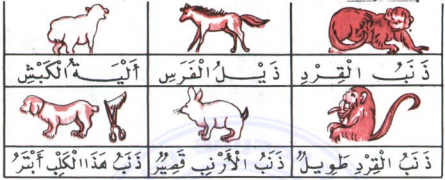 ذَنَبُ الْقِرْدِ
ذَيْلُ الْفَرَسِ
أَلْيَةُ الْكَبْشِ
ذَنَبُ الْقِرْدِ طَوِيلٌ
ذَنَبُ الْأَرْنَبِ قَصِيرٌ
ذَنَبُ هَذَا الْكَلْبِ أَبْتَرُ